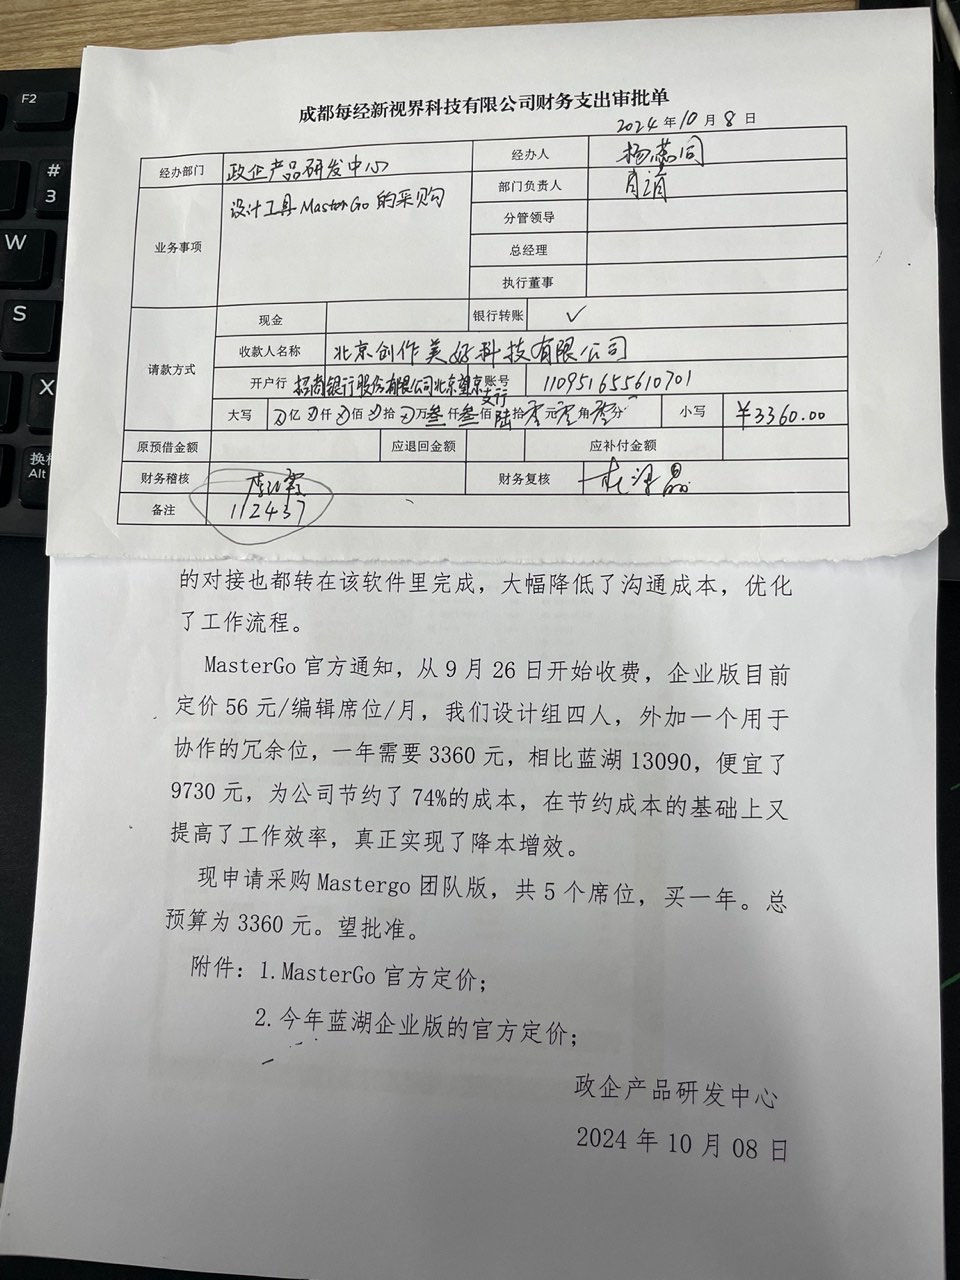 成都每经新视界科技有限公司财务支出审批单
2024 年 10 月 8 日
经办部门 政企产品研发中心 经办人 杨蕊同
业务事项 设计工具MasterGo的采购 部门负责人 肖清
分管领导
总经理
执行董事
请款方式 现金 银行转账 ✓
收款人名称 北京创作美好科技有限公司
开户行 招商银行股份有限公司北京望京支行 账号 110951655610701
大写 亿 仟 佰 拾 万 叁 仟 叁 佰 陆 拾 零 元 零 角 零 分 小写 ¥3360.00
原预借金额 应退回金额 应补付金额
财务稽核 财务复核
备注 112437
的对接也都转在该软件里完成，大幅降低了沟通成本，优化
了工作流程。
MasterGo 官方通知，从 9 月 26 日开始收费，企业版目前
定价 56 元/编辑席位/月，我们设计组四人，外加一个用于
协作的冗余位，一年需要 3360 元，相比蓝湖 13090，便宜了
9730 元，为公司节约了 74%的成本，在节约成本的基础上又
提高了工作效率，真正实现了降本增效。
现申请采购 Mastergo 团队版，共 5 个席位，买一年。总
预算为 3360 元。望批准。
附件：1.MasterGo 官方定价；
2.今年蓝湖企业版的官方定价；
政企产品研发中心
2024 年 10 月 08 日
F2
#
3
W
S
X
换档
Alt